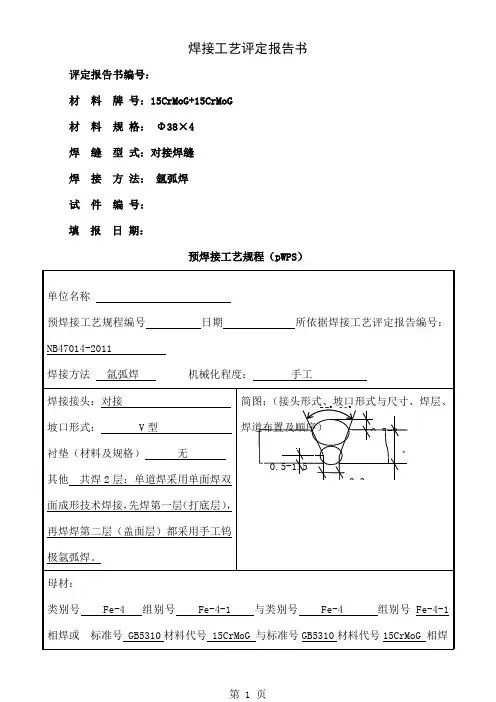 焊接工艺评定报告书
评定报告书编号：
材 料 牌 号：15CrMoG+15CrMoG
材 料 规 格： Φ38×4
焊 缝 型 式：对接焊缝
焊 接 方 法： 氩弧焊
试 件 编 号：
填 报 日 期：
预焊接工艺规程（pWPS）
单位名称
预焊接工艺规程编号 日期 所依据焊接工艺评定报告编号：
NB47014-2011
焊接方法 氩弧焊 机械化程度： 手工
焊接接头：对接
坡口形式： V型
衬垫（材料及规格） 无
其他 共焊2层；单道焊采用单面焊双
面成形技术焊接，先焊第一层（打底层），
再焊焊第二层（盖面层）都采用手工钨
极氩弧焊。
简图：（接头形式、坡口形式与尺寸、焊层、
焊道布置及顺序）
0.5-1.5
母材：
类别号 Fe-4 组别号 Fe-4-1 与类别号 Fe-4 组别号 Fe-4-1
相焊或 标准号 GB5310 材料代号 15CrMoG 与标准号 GB5310 材料代号 15CrMoG 相焊
第 1 页